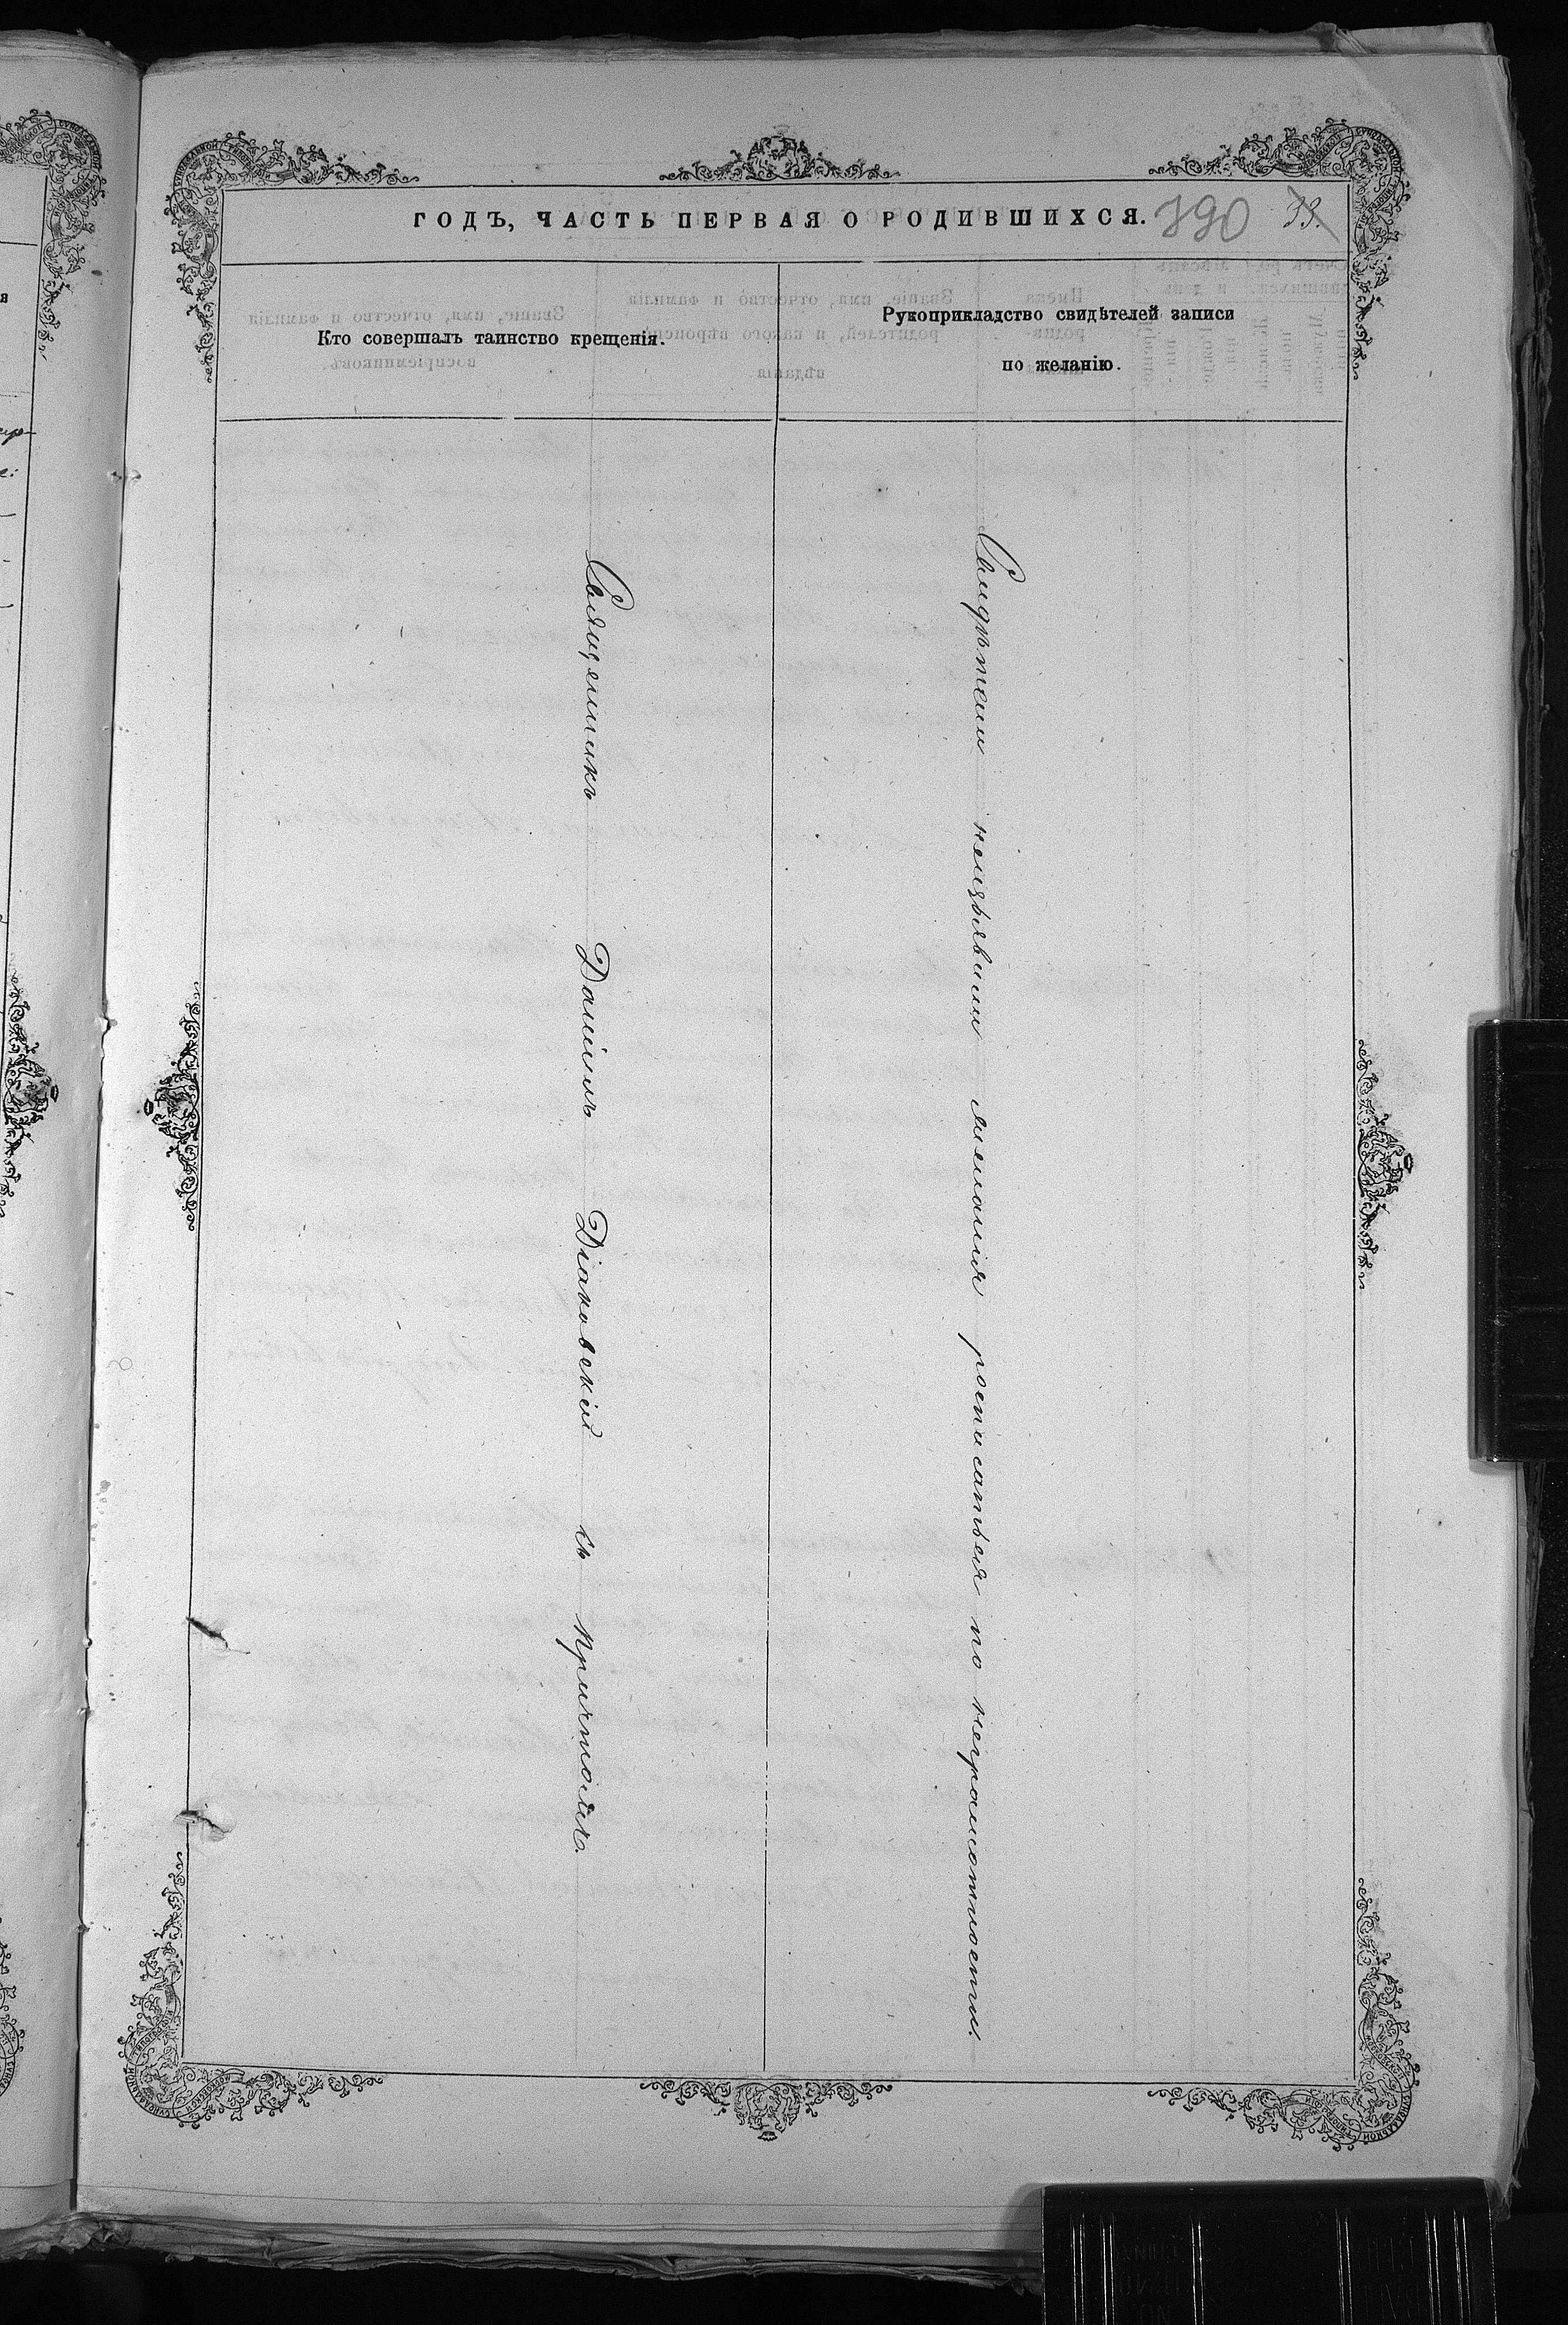 ГОДЪ, ЧАСТЬ ПЕРВАЯ О РОДИВШИХСЯ. 390 33.
Кто совершалъ таинство крещенія.
Рукоприкладство свидѣтелей записи
по желанію.
Священникъ Даніилъ Діаковскій съ причтомъ.
Свидѣтели неизъявили желанія росписаться по неграмотности.